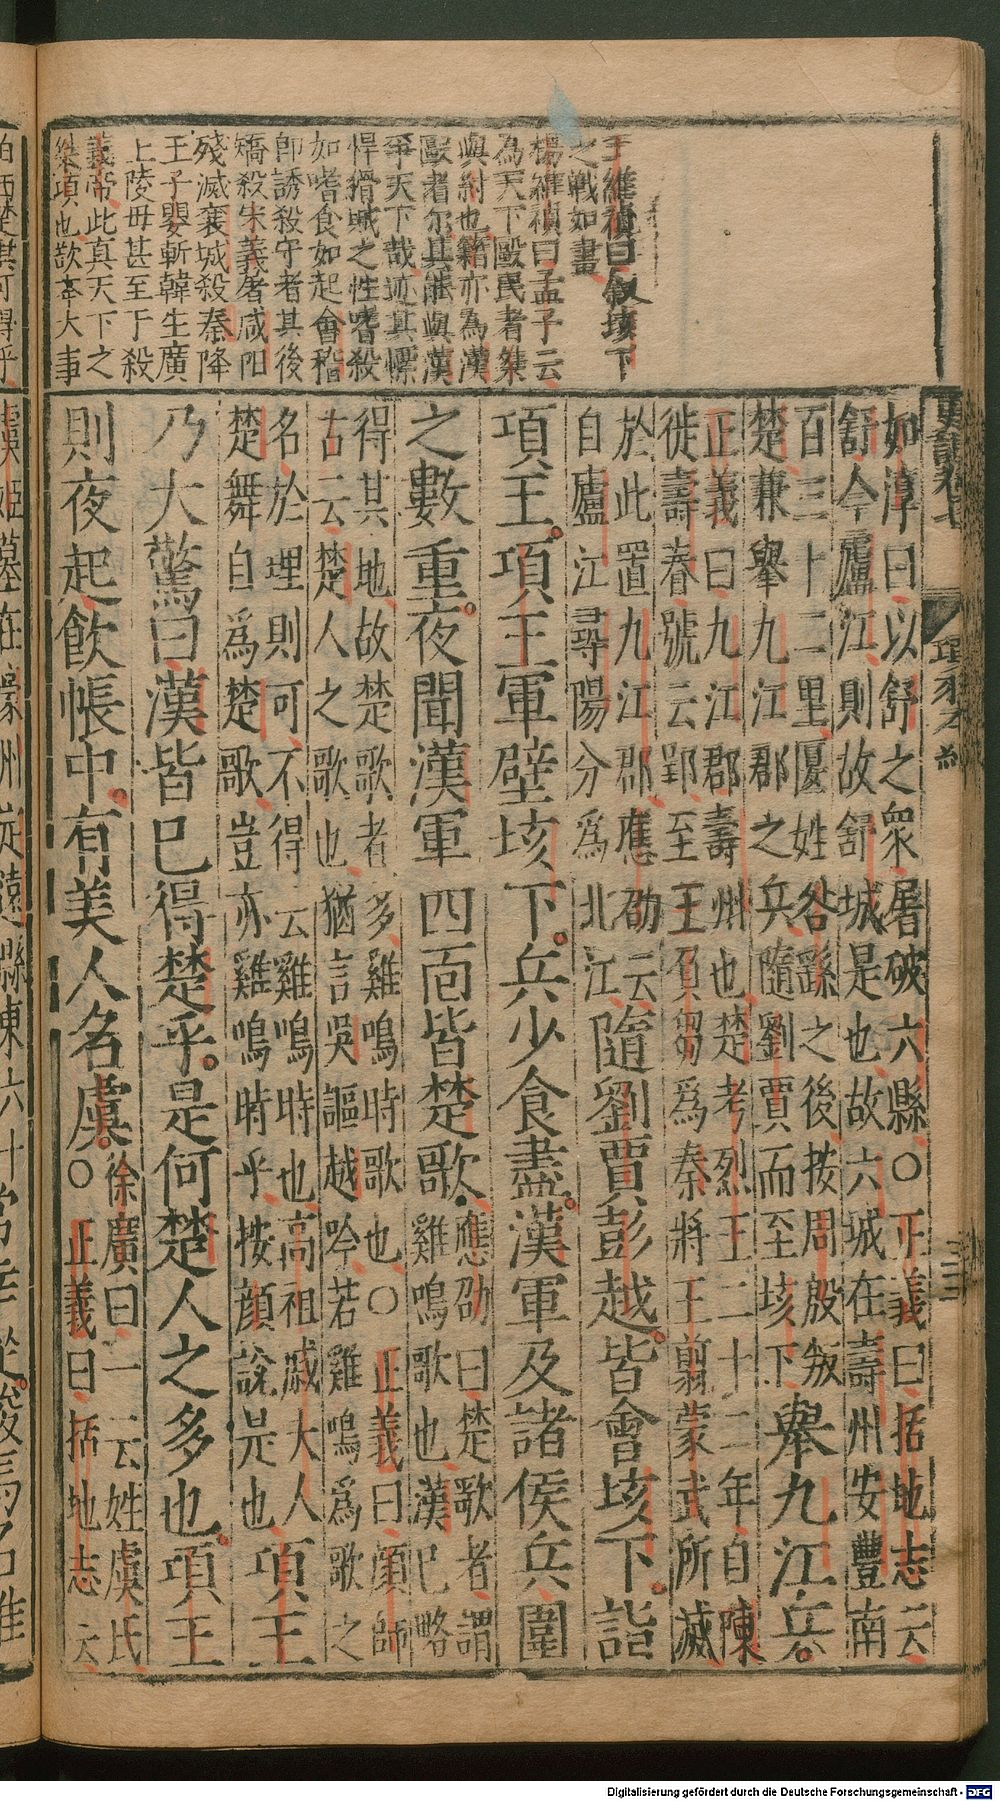 王維禎曰叙垓下
之戰如畫
楊維禎曰孟子云
為天下敺民者桀
與紂也籍亦為漢
敺者尔其能與漢
爭天下哉迹其慓
悍猾賊之性嗜殺
如嗜食如起會稽
即誘殺守者其後
矯殺宋義屠咸阳
殘滅襄城殺秦降
王子嬰斬韓生廣
上陵毋甚至于殺
義帝此真天下之
桀項也欲奉大事
史記卷七 項羽本紀
如淳曰以舒之衆屠破六縣〇正義曰括地志云
舒今廬江則故舒城是也故六城在壽州安豐南
百三十二里偃姓咎繇之後按周殷叛
楚兼舉九江郡之兵隨劉賈而至垓下舉九江兵。
正義曰九江郡壽州也楚考烈王二十二年自陳
徙壽春號云郢至王負芻為秦將王翦蒙武所滅
於此置九江郡應劭云
自廬江尋陽分爲北江隨劉賈彭越。皆會垓下。詣
項王。項王軍壁垓下。兵少食盡。漢軍及諸侯兵圍
之數重。夜聞漢軍四面皆楚歌、應劭曰楚歌者謂
雞鳴歌也漢已略
得其地故楚歌者多雞鳴時歌也〇正義曰顔師
古云楚人之歌也猶言吳謳越吟若雞鳴爲歌之
名於理則可不得云雞鳴時也高祖戚夫人
楚舞自爲楚歌豈亦雞鳴時乎按顔說是也項王
乃大驚曰漢皆已得楚乎。是何楚人之多也。項王
則夜起飲帳中。有美人名虞。徐廣曰一云姓虞氏
〇正義曰括地志云
Digitalisierung gefördert durch die Deutsche Forschungsgemeinschaft - DFG